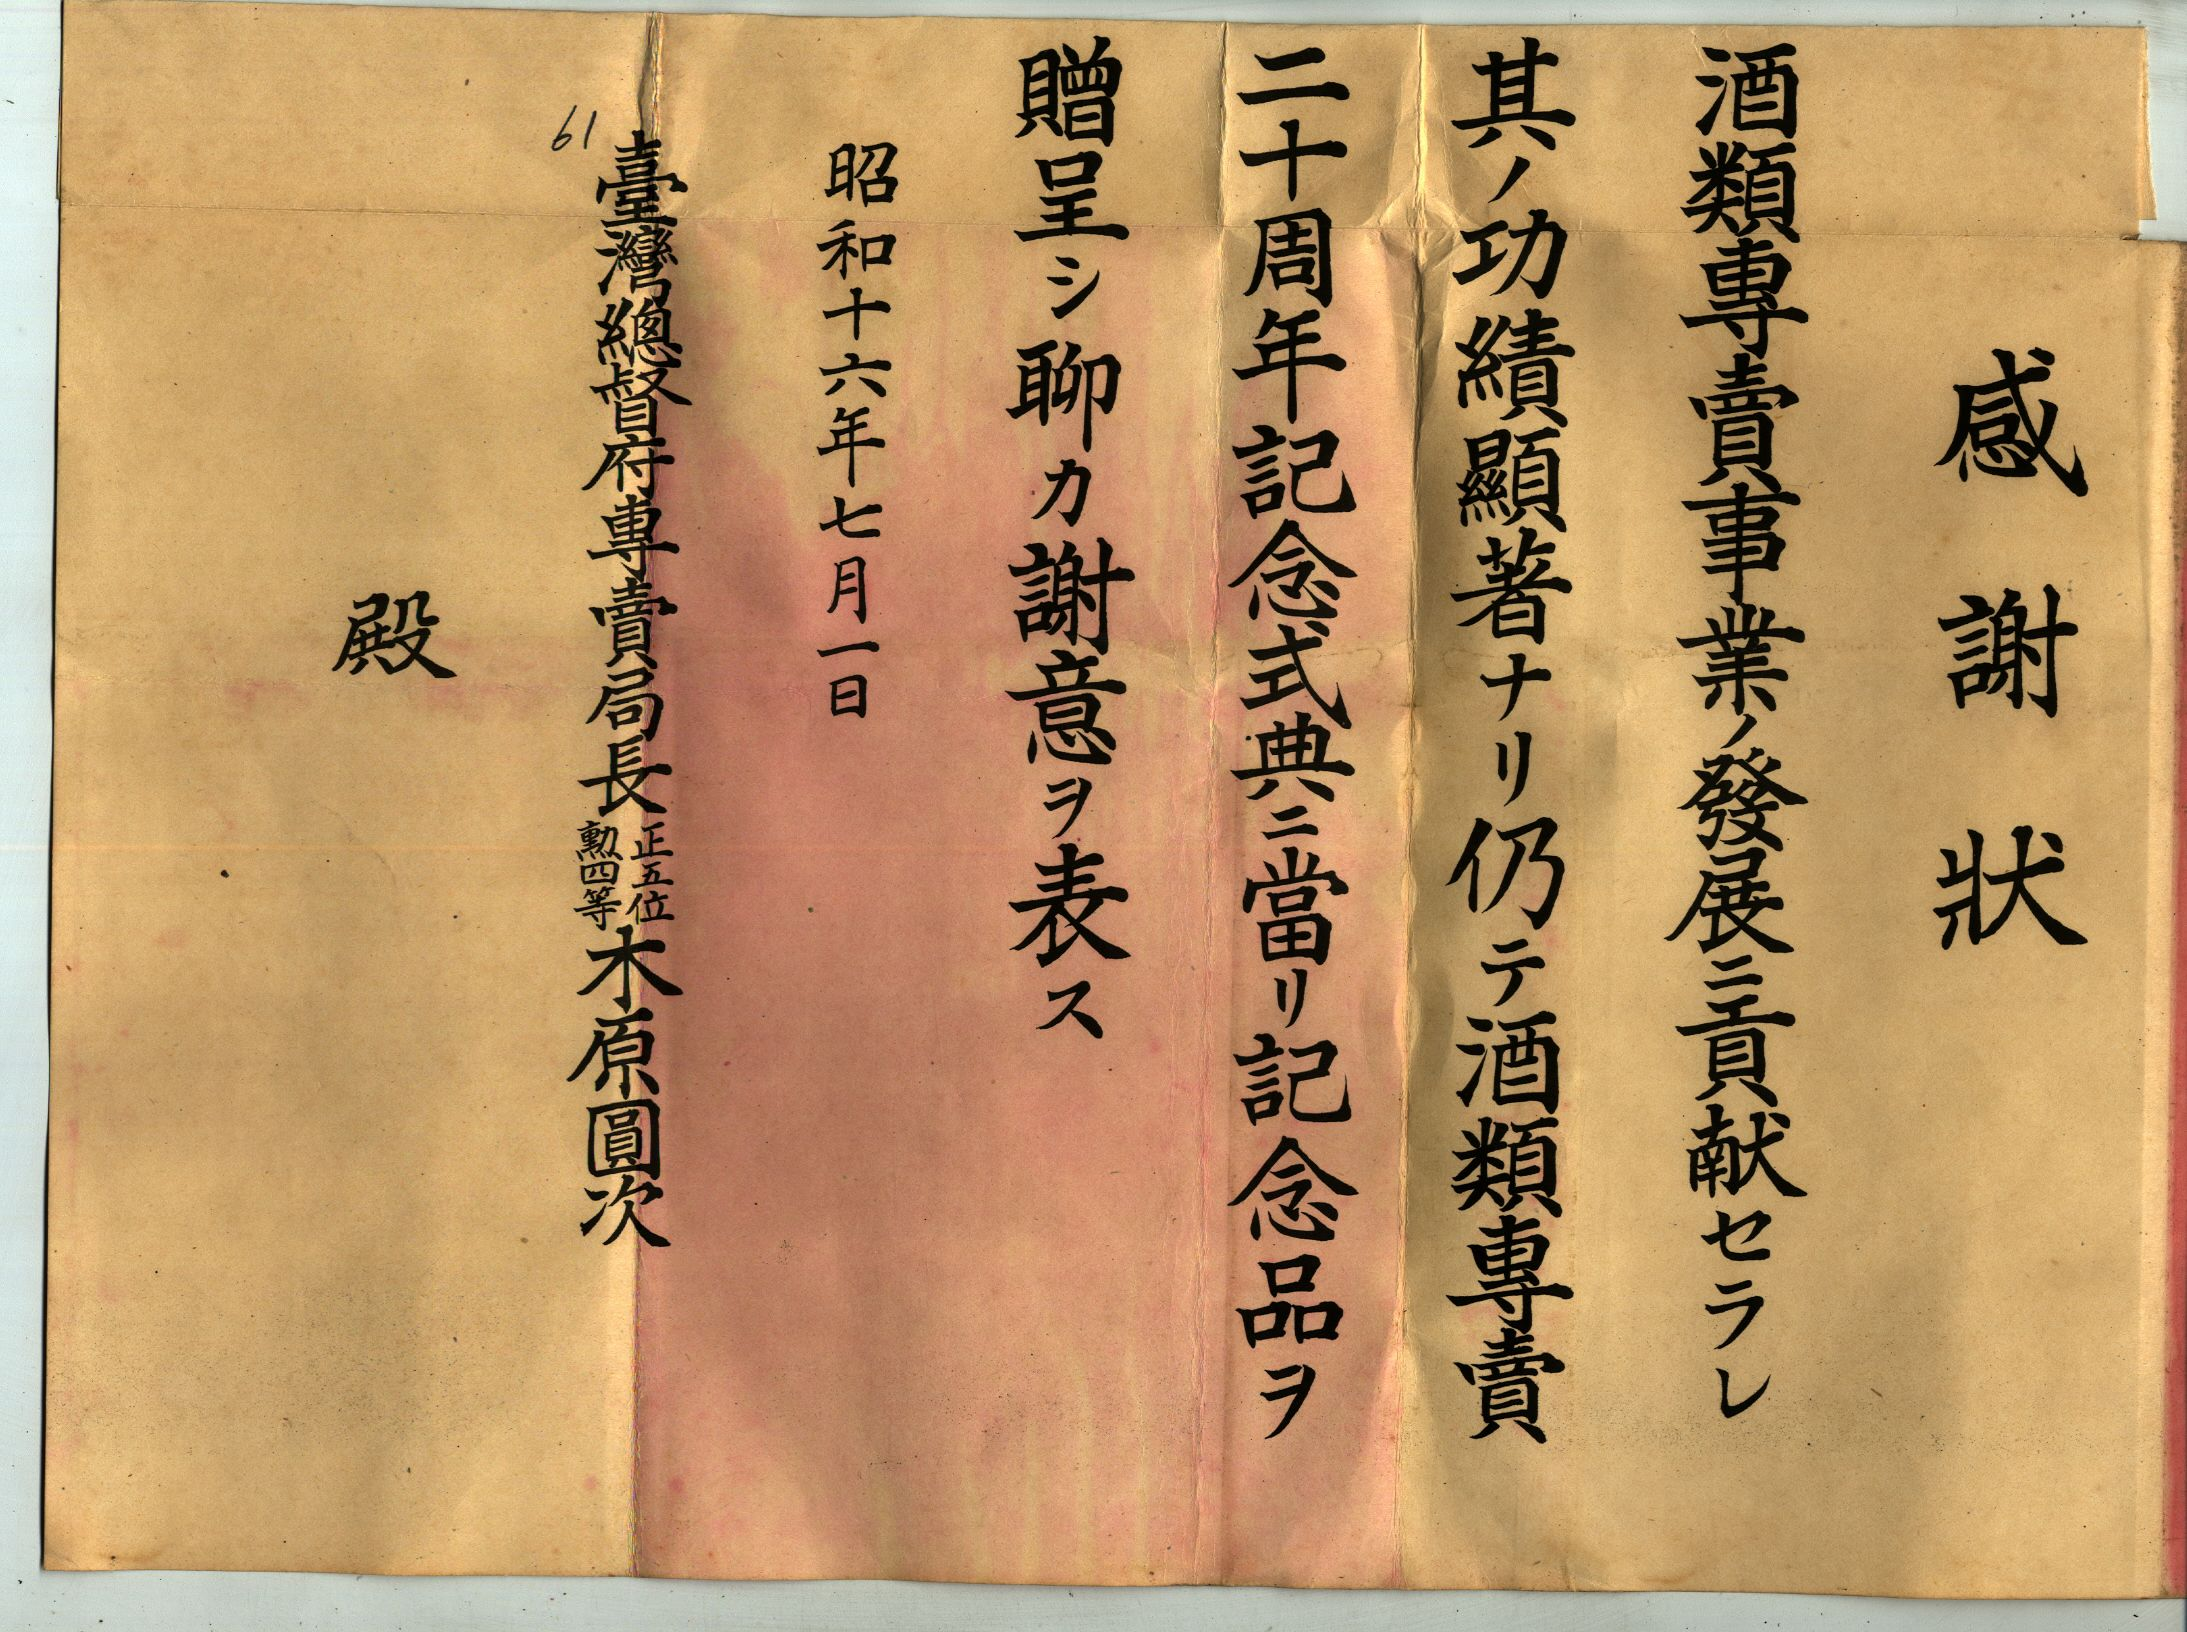 感謝狀
酒類專賣事業ノ發展ニ貢献セラレ
其ノ功績顯著ナリ仍テ酒類專賣
二十周年記念式典ニ當リ記念品ヲ
贈呈シ聊カ謝意ヲ表ス
昭和十六年七月一日
61
臺灣總督府專賣局長正五位勲四等木原圓次
殿